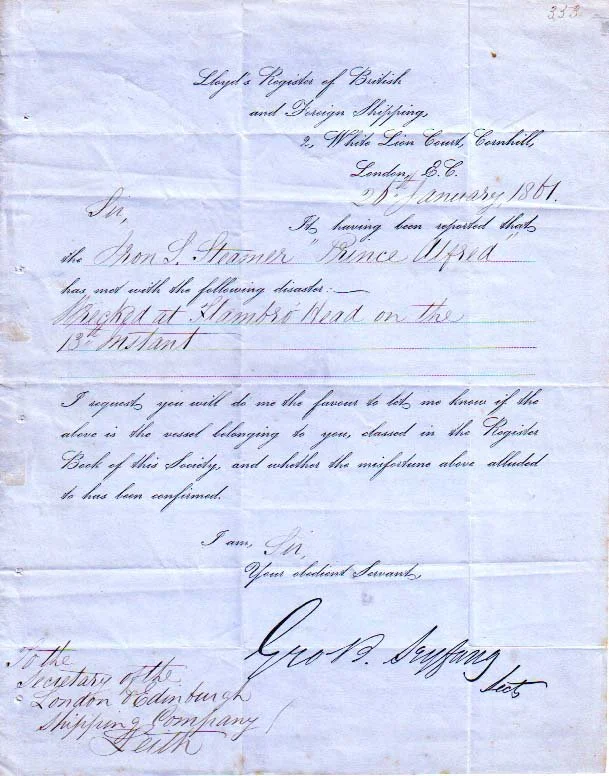 333
Lloyd's Register of British
and Foreign Shipping,
2, White Lion Court, Cornhill,
London, E.C.
25th January, 1861.
Sir,
It having been reported that
the Iron S. Steamer "Prince Alfred"
has met with the following disaster:—
Wrecked at Flambro' Head on the
13th Instant
I request you will do me the favour to let me know if the
above is the vessel belonging to you, classed in the Register
Book of this Society, and whether the misfortune above alluded
to has been confirmed.
I am, Sir,
Your obedient Servant,
Geo B. Seyfang
Secy
To the
Secretary of the
London & Edinburgh
Shipping Company
Leith